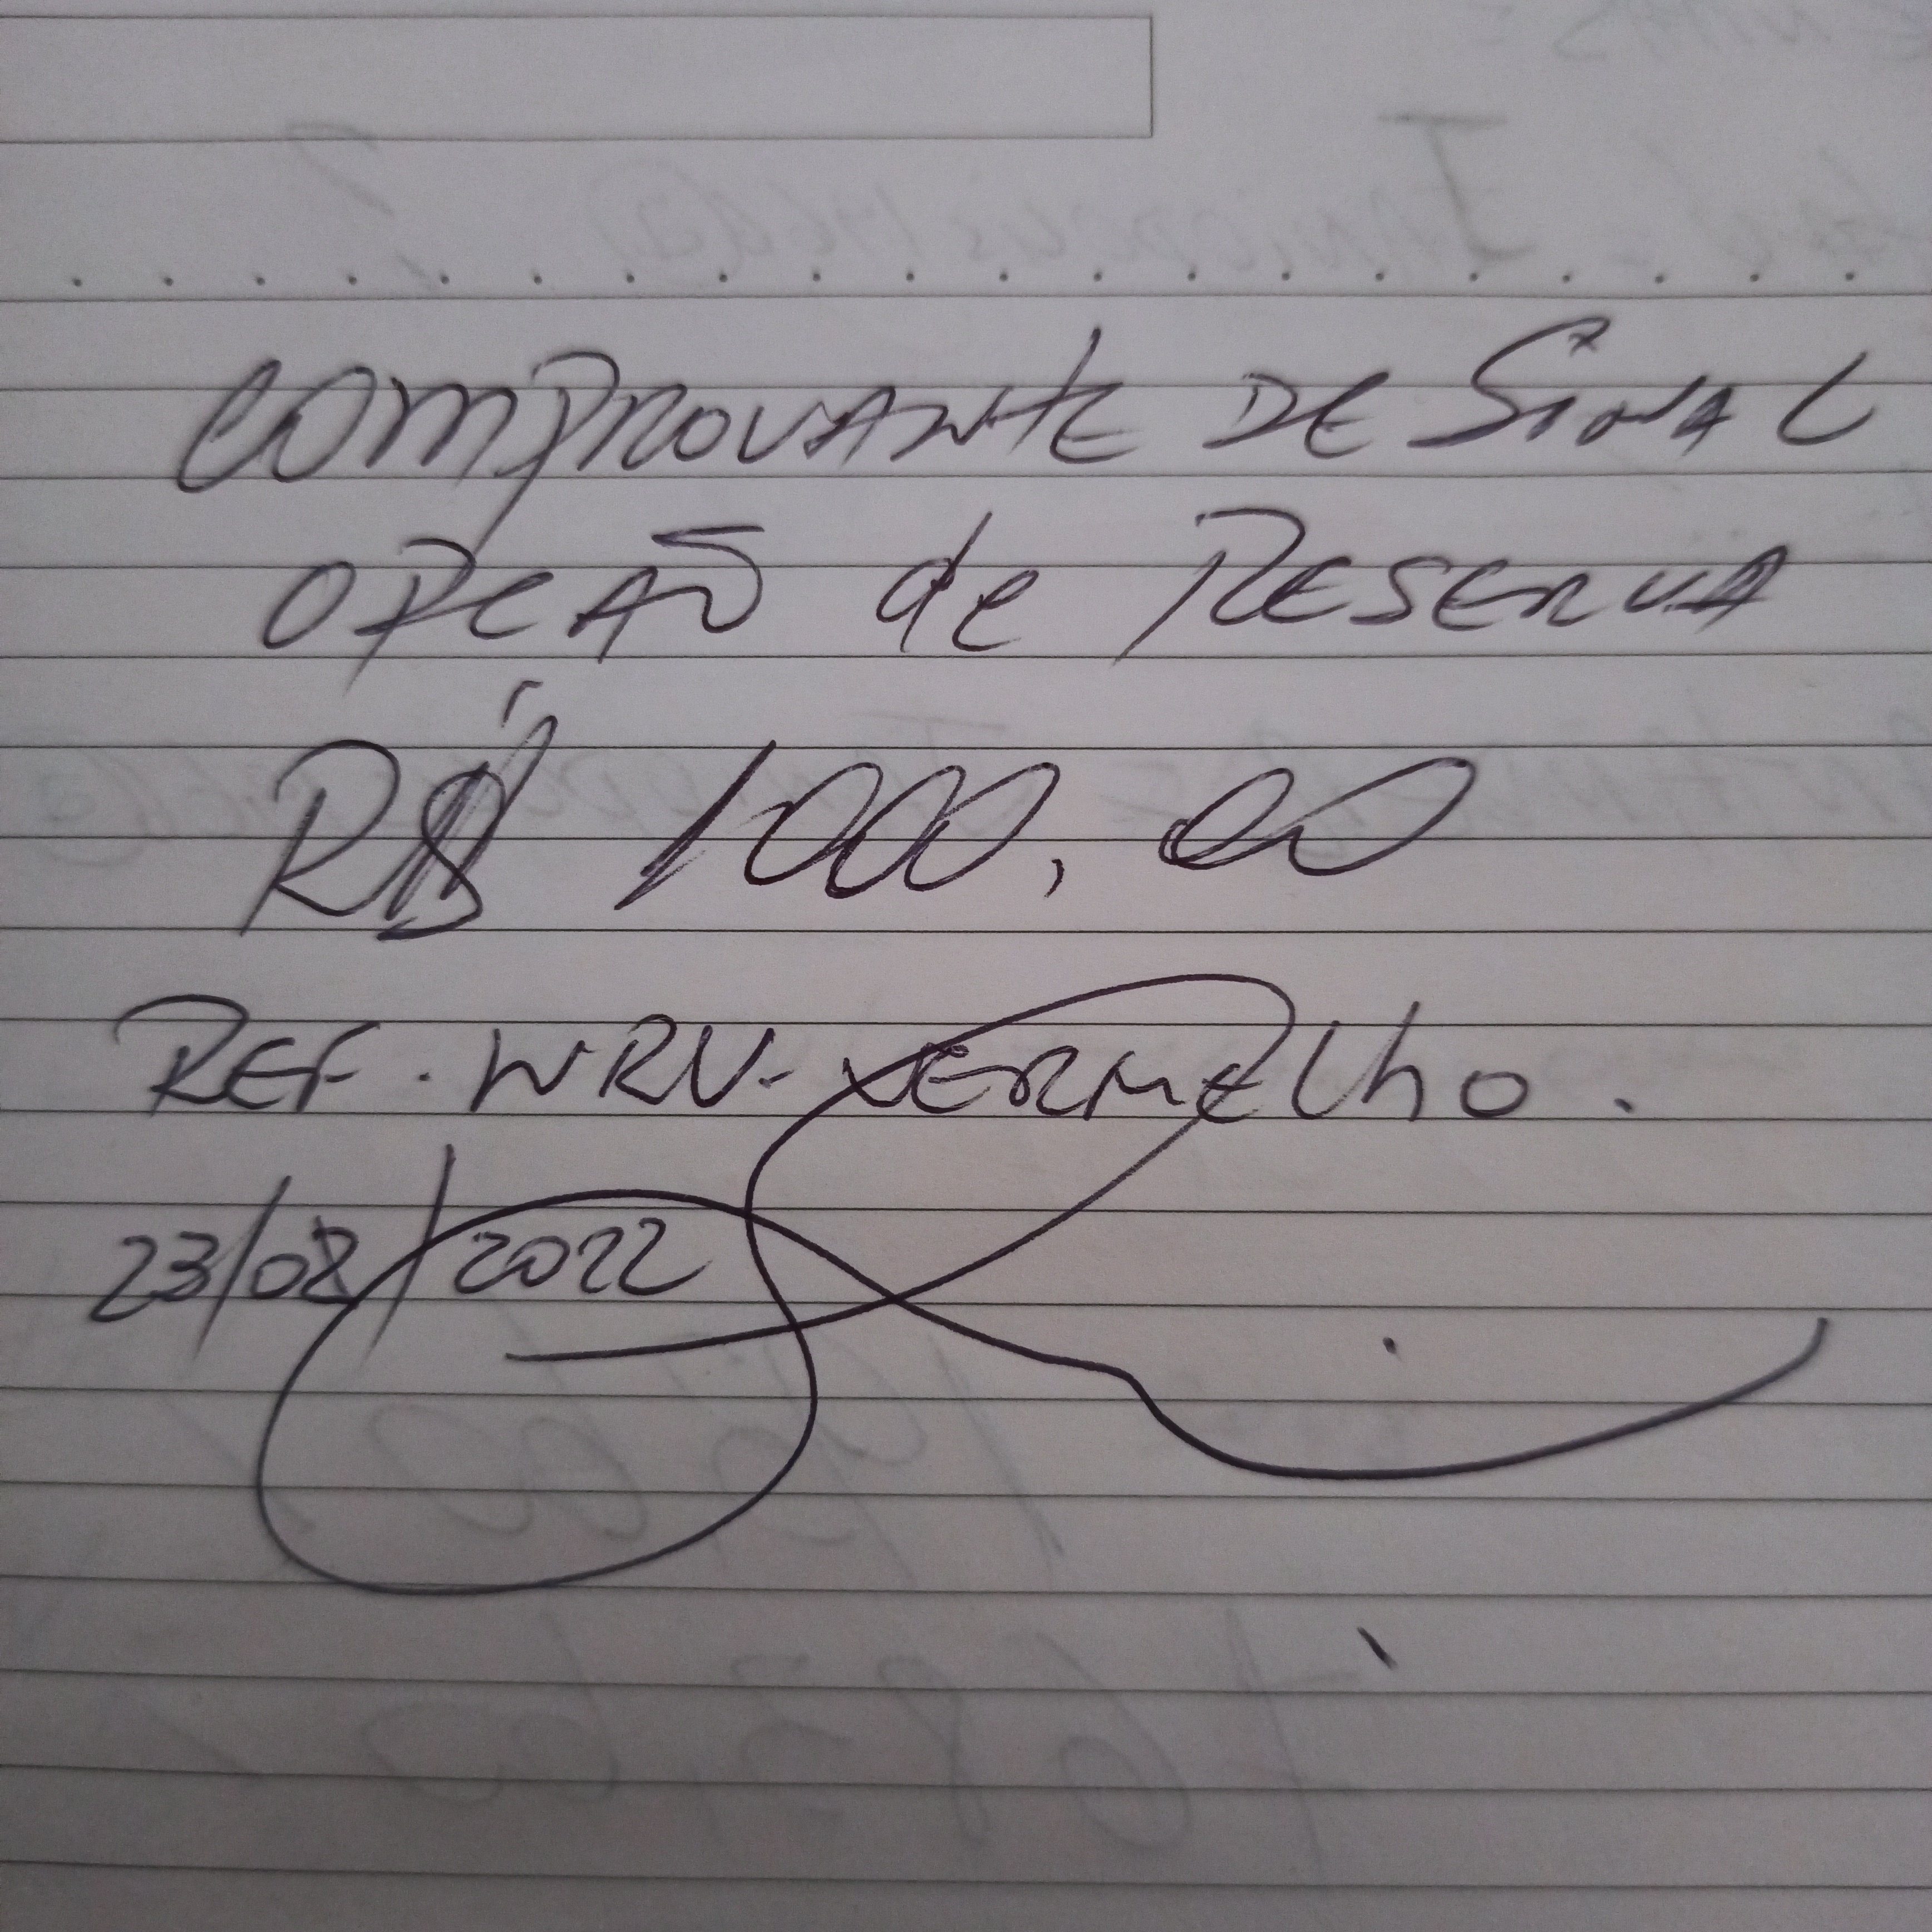 COMPROVANTE DE SINAL
OPCAÕ de RESERVA
R$ 1000,00
REF. WRV - VERMELhO.
23/08/2022